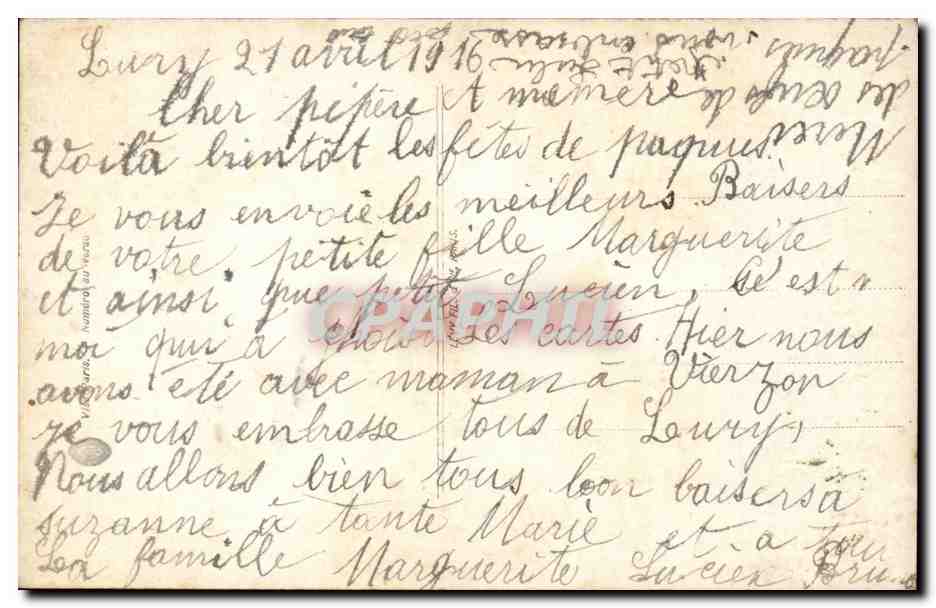 Lury 21 avril 1916
Cher pépère et mémère
Voila bientôt les fêtes de paques.
Je vous envoie les meilleurs Baisers
de votre petite fille Marguerite
et ainsi que petit Lucien, Cé est
moi qui à choisi les cartes Hier nous
avons été avec maman à Vierzon
je vous embrasse tous de Lury,
Nous allons bien tous bon baisers à
suzanne à tante Marie et a tou
La famille Marguerite Lucien Bru
Merci
des œufs de
paques
vous embrasse
CPARHTI